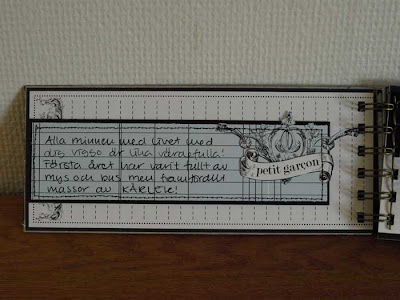 Alla minnen med livet med
dig Vigge är lika värdefulla!
Första året har varit fullt av
mys och bus men framförallt
massor av KÄRLEK!
petit garçon